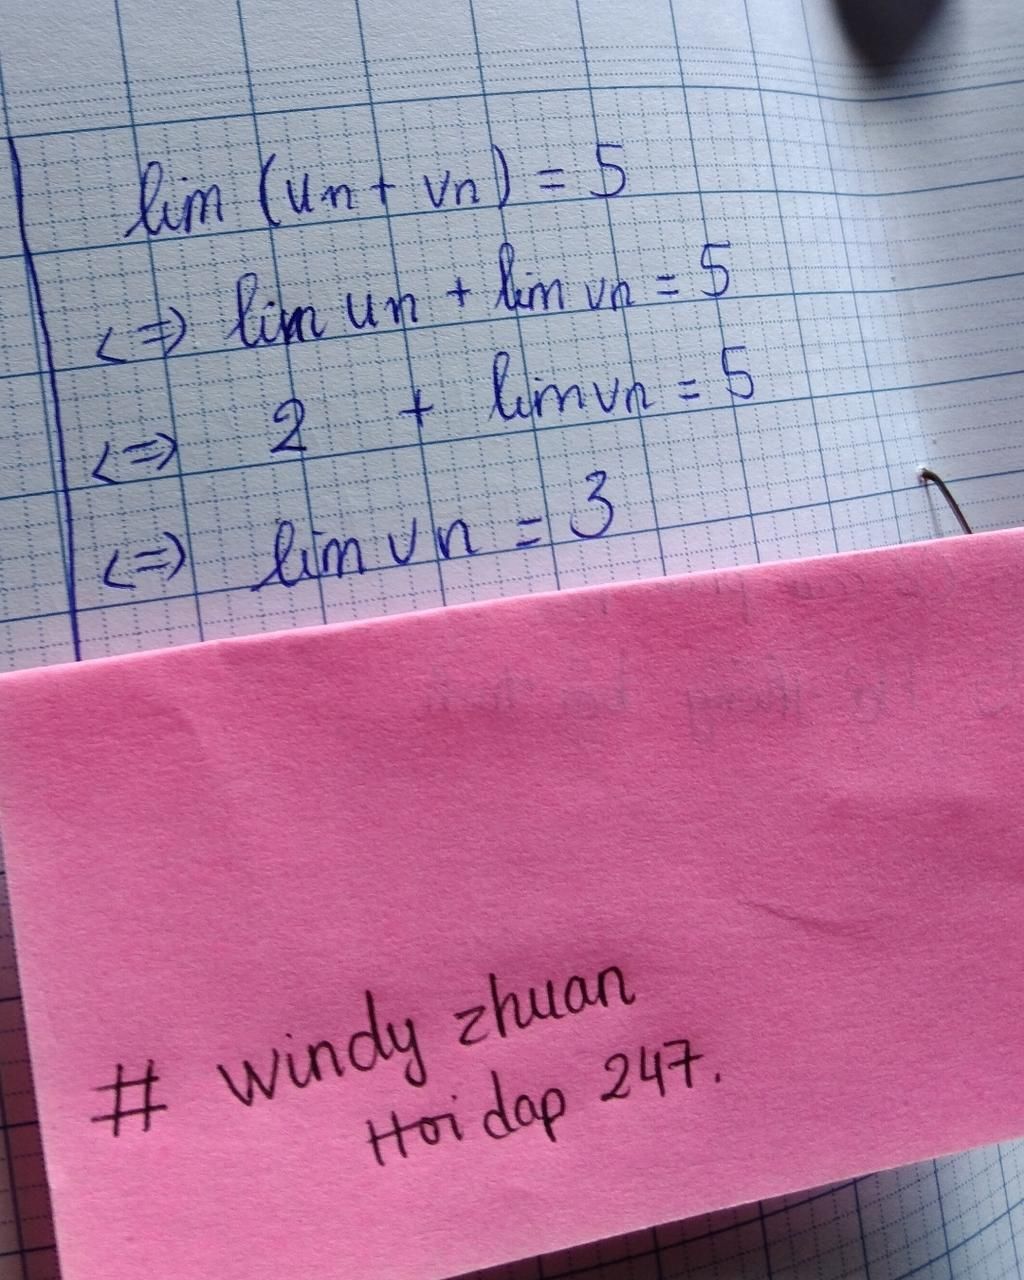 lim (un + vn) = 5
<=> lim un + lim vn = 5
<=> 2 + lim vn = 5
<=> lim vn = 3
# windy zhuan
Hoi dap 247.